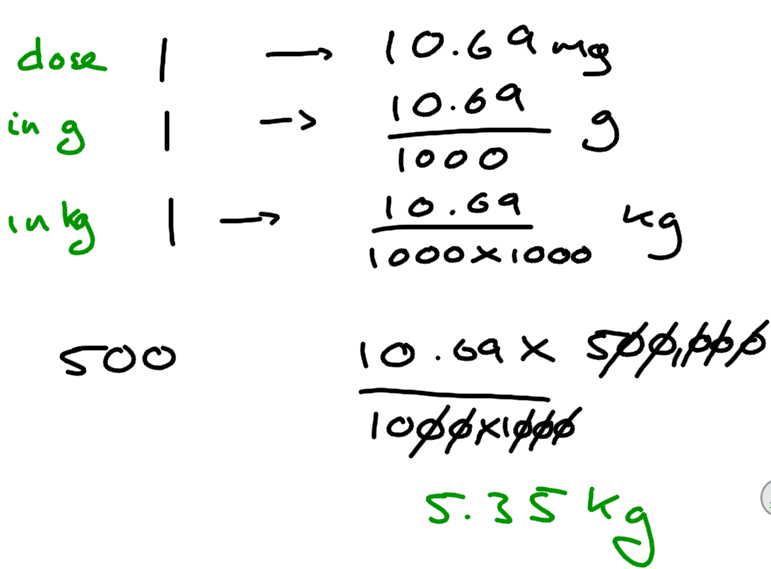 dose 1 → 10.69 mg
in g 1 → 10.69 g
1000
in kg 1 → 10.69 kg
1000×1000
500 10.69 × 500,000
1000×1000
5.35 kg